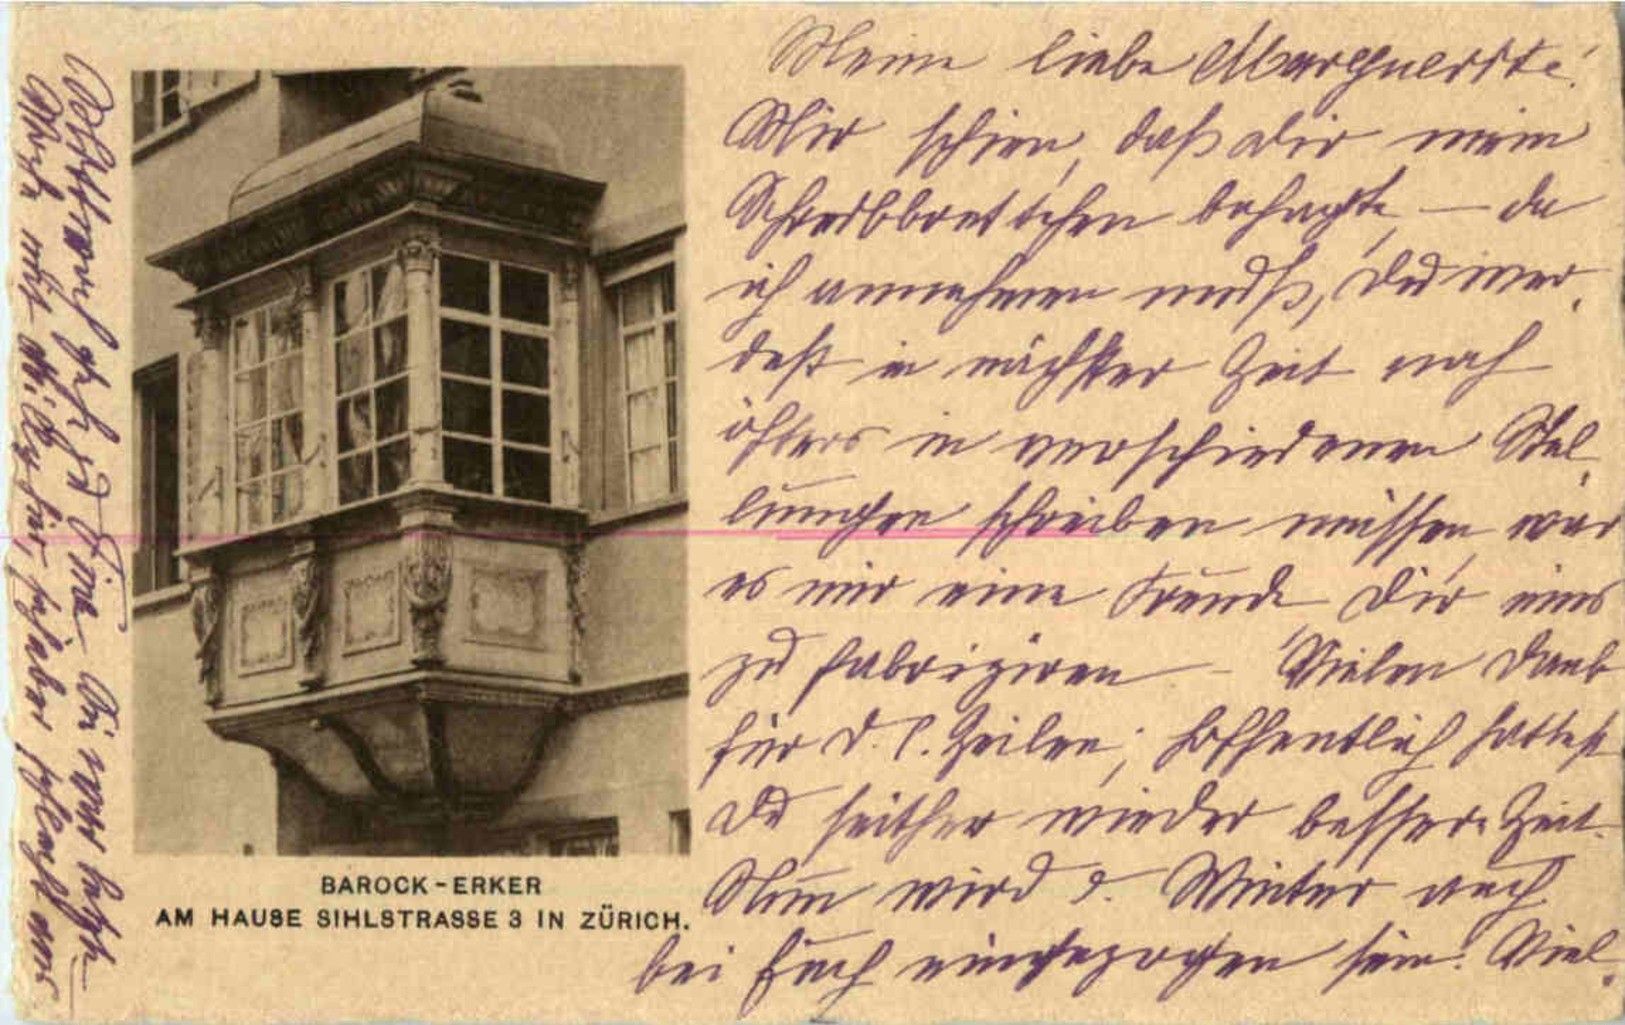 Meine liebe Marguerite!
Mir schien, daß Dir mein
Schreibbrettchen behagte, — da
ich annehmen muß, Du wer-
dest in nächster Zeit noch
öfters in verschiedenen Stel-
lungen schreiben müssen, wär
es mir eine Freude Dir eins
zu fabriziren — Vielen Dank
für d. l. Zeilen; hoffentlich hattest
Du seither wieder bessere Zeit.
Nun wird d. Winter auch
bei Euch eingezogen sein. Viel-
BAROCK-ERKER
AM HAUSE SIHLSTRASSE 3 IN ZÜRICH.